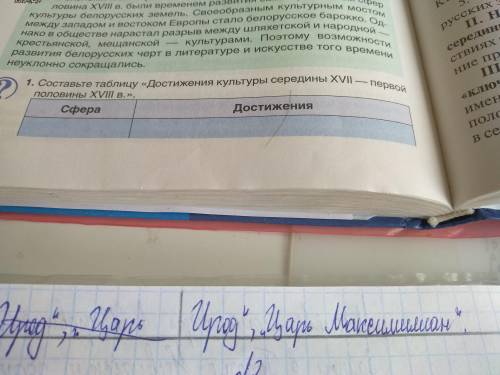 ловина XVIII в. были временем развития сфер
культуры белорусских земель. Своеобразным культурным мостом
между западом и востоком Европы стало белорусское барокко. Од-
нако в обществе нарастал разрыв между шляхетской и народной —
крестьянской, мещанской — культурами. Поэтому возможности
развития белорусских черт в литературе и искусстве того времени
неуклонно сокращались.
1. Составьте таблицу «Достижения культуры середины XVII — первой
половины XVIII в.».
Сфера Достижения
русских
II.
середин
ствиях
ние пр
III
«ключ
имен
поло
в се
Ирод", „Царь Ирод", „Царь Максимилиан".